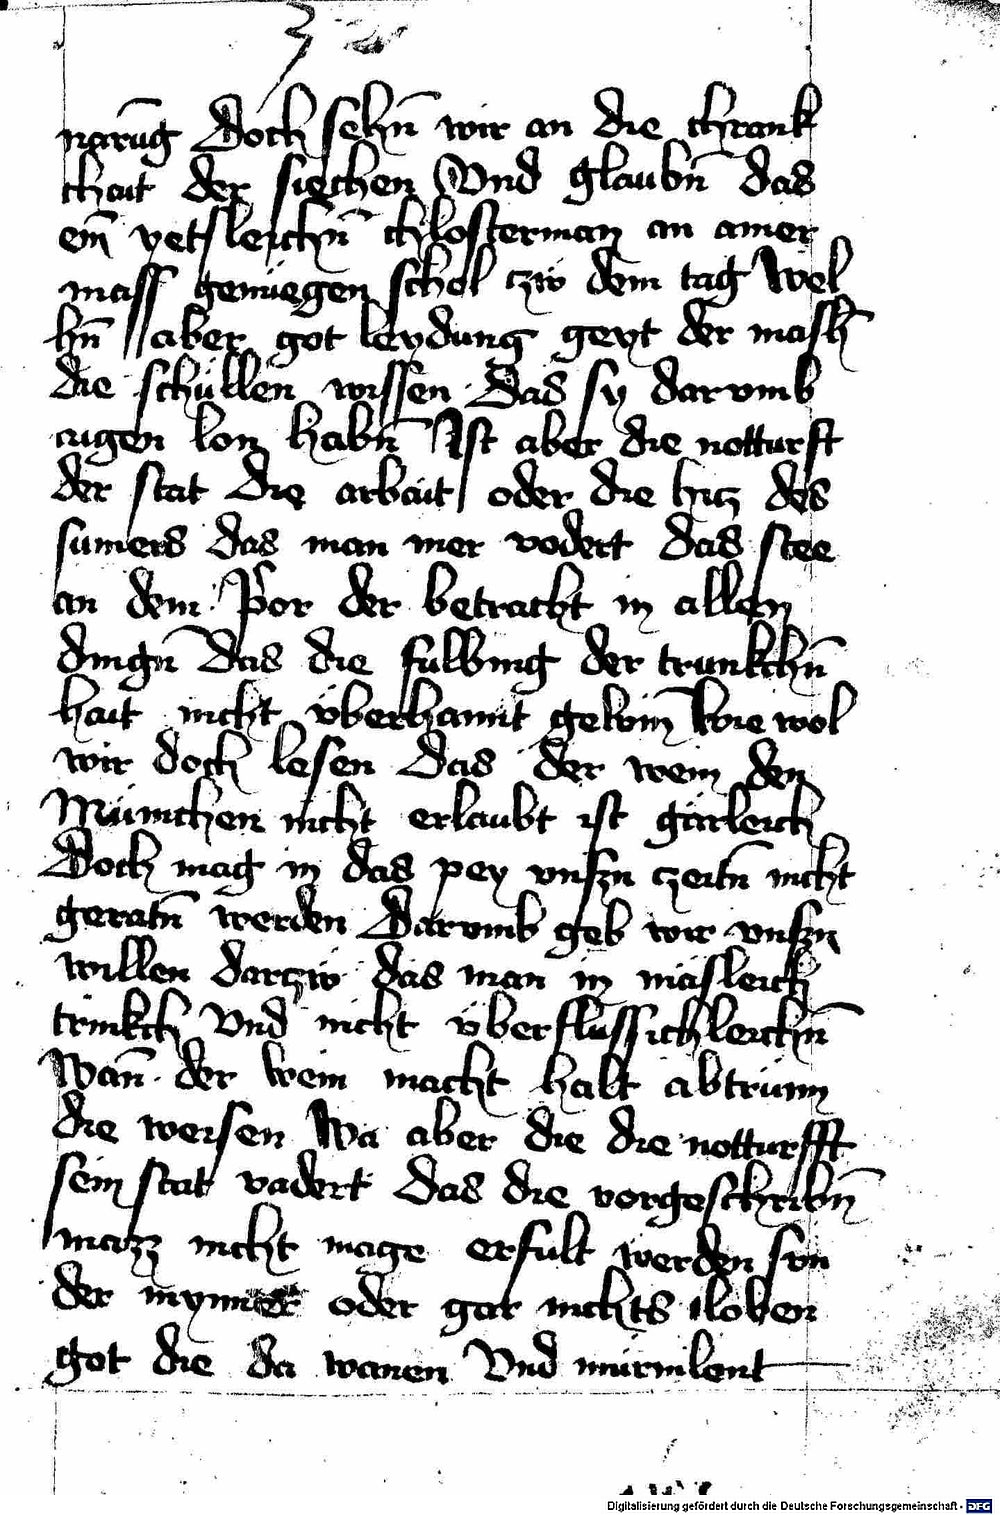 narūg Doch sehn̄ wir an die chrank
chait der siechen Vnd glaubn̄ das
ein̄ yetsleichn̄ chlosterman an ainer
mass genüegen schol czw dem tag Wel
hn̄ aber got leydung geyt der massh̄
die schüllen wissen Das sy darvmb
aigen lon habn̄ Ist aber die notturft
der stat die arbait oder die hicz des
sumers das man mer vodert das stee
an dem Pror der betracht in allen
dingn̄ Das die fullung der trunkchn̄
hait nicht vberhannt gewin̄ wie wol
wir doch lesen Das der wein den
Münichen nicht erlaubt ist gärleich
Doch mag in das pey vnszn czeitn̄ nicht
geratn̄ werden Darvmb geb wir vnszn
willen darczw das man in mäsleich
trinkch Vnd nicht vberflussichleichn̄
Wan̄ der wein macht halt abtrünn
die weisen Wa aber die die notturfft
sein stat vadert Das die vorgeschribn̄
mazz nicht mage erfult werden svn
der mynner oder gar nichts iloben
got die da wanen Vnd murmlent
Digitalisierung gefördert durch die Deutsche Forschungsgemeinschaft - DFG